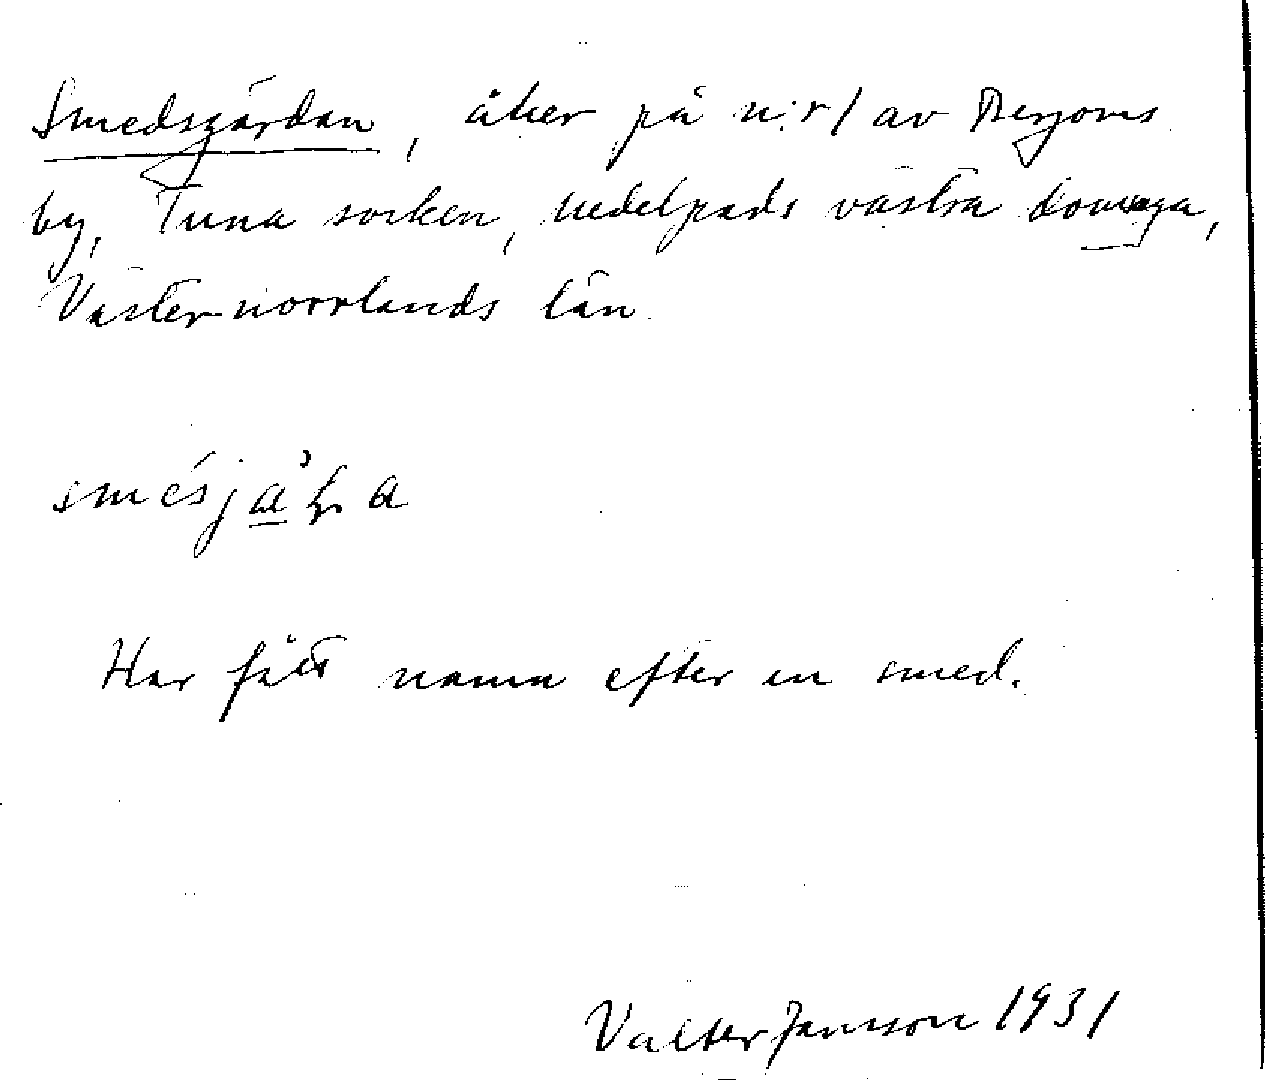 Smedsgärdan, åker på n:r 1 av Bergoms
by, Tuna socken, Medelpads västra domsaga,
Västernorrlands län.
Har fått namn efter en smed.
Valter Jansson 1931